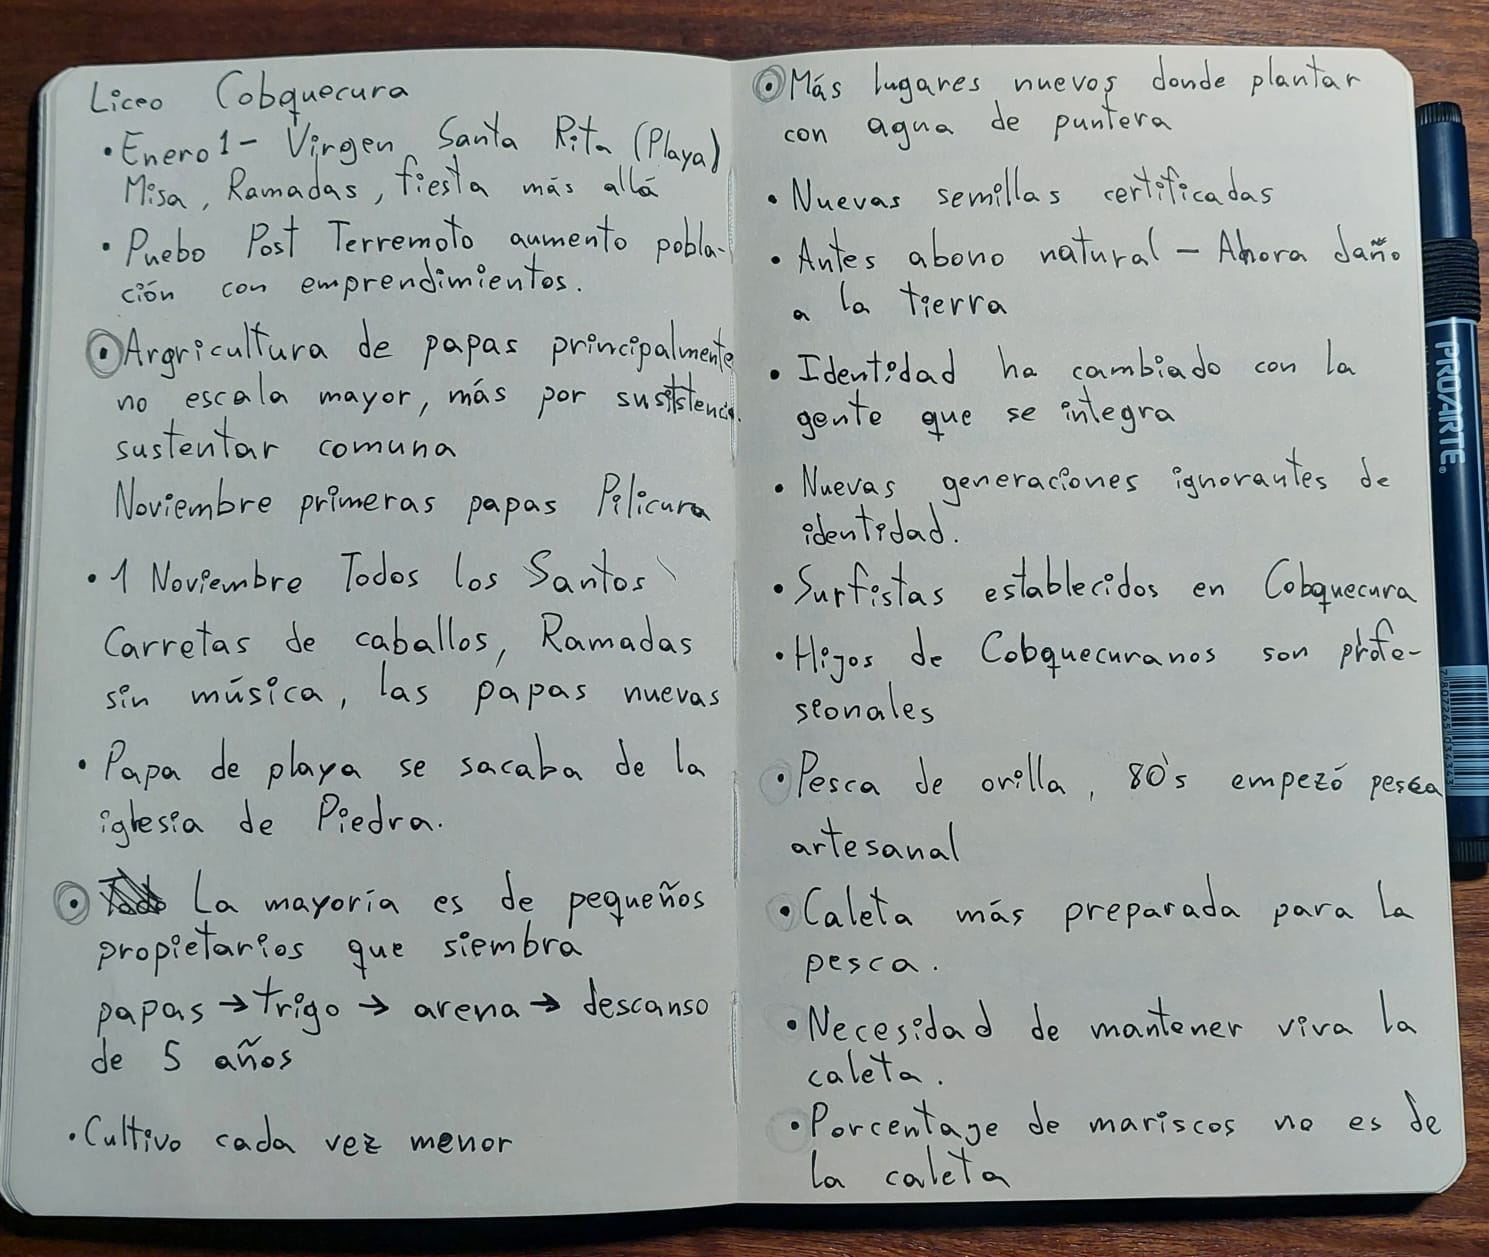 Liceo Cobquecura
• Enero 1 - Virgen Santa Rita (Playa)
Misa, Ramadas, fiesta más allá
• Puebo Post Terremoto aumento pobla-
ción con emprendimientos.
• Argricultura de papas principalmente
no escala mayor, más por
sustentar comuna
Noviembre primeras papas Pilicura
• 1 Noviembre Todos los Santos
Carretas de caballos, Ramadas
sin música, las papas nuevas
• Papa de playa se sacaba de la
iglesia de Piedra.
• La mayoría es de pequeños
propietarios que siembra
papas → trigo → arena → descanso
de 5 años
• Cultivo cada vez menor
• Más lugares nuevos donde plantar
con agua de puntera
• Nuevas semillas certificadas
• Antes abono natural - Ahora daño
a la tierra
• Identidad ha cambiado con la
gente que se integra
• Nuevas generaciones ignorantes de
identidad.
• Surfistas establecidos en Cobquecura
• Hijos de Cobquecuranos son profe-
sionales
• Pesca de orilla, 80's empezó pesca
artesanal
• Caleta más preparada para la
pesca.
• Necesidad de mantener viva la
caleta.
• Porcentage de mariscos no es de
la caleta
PROARTE®